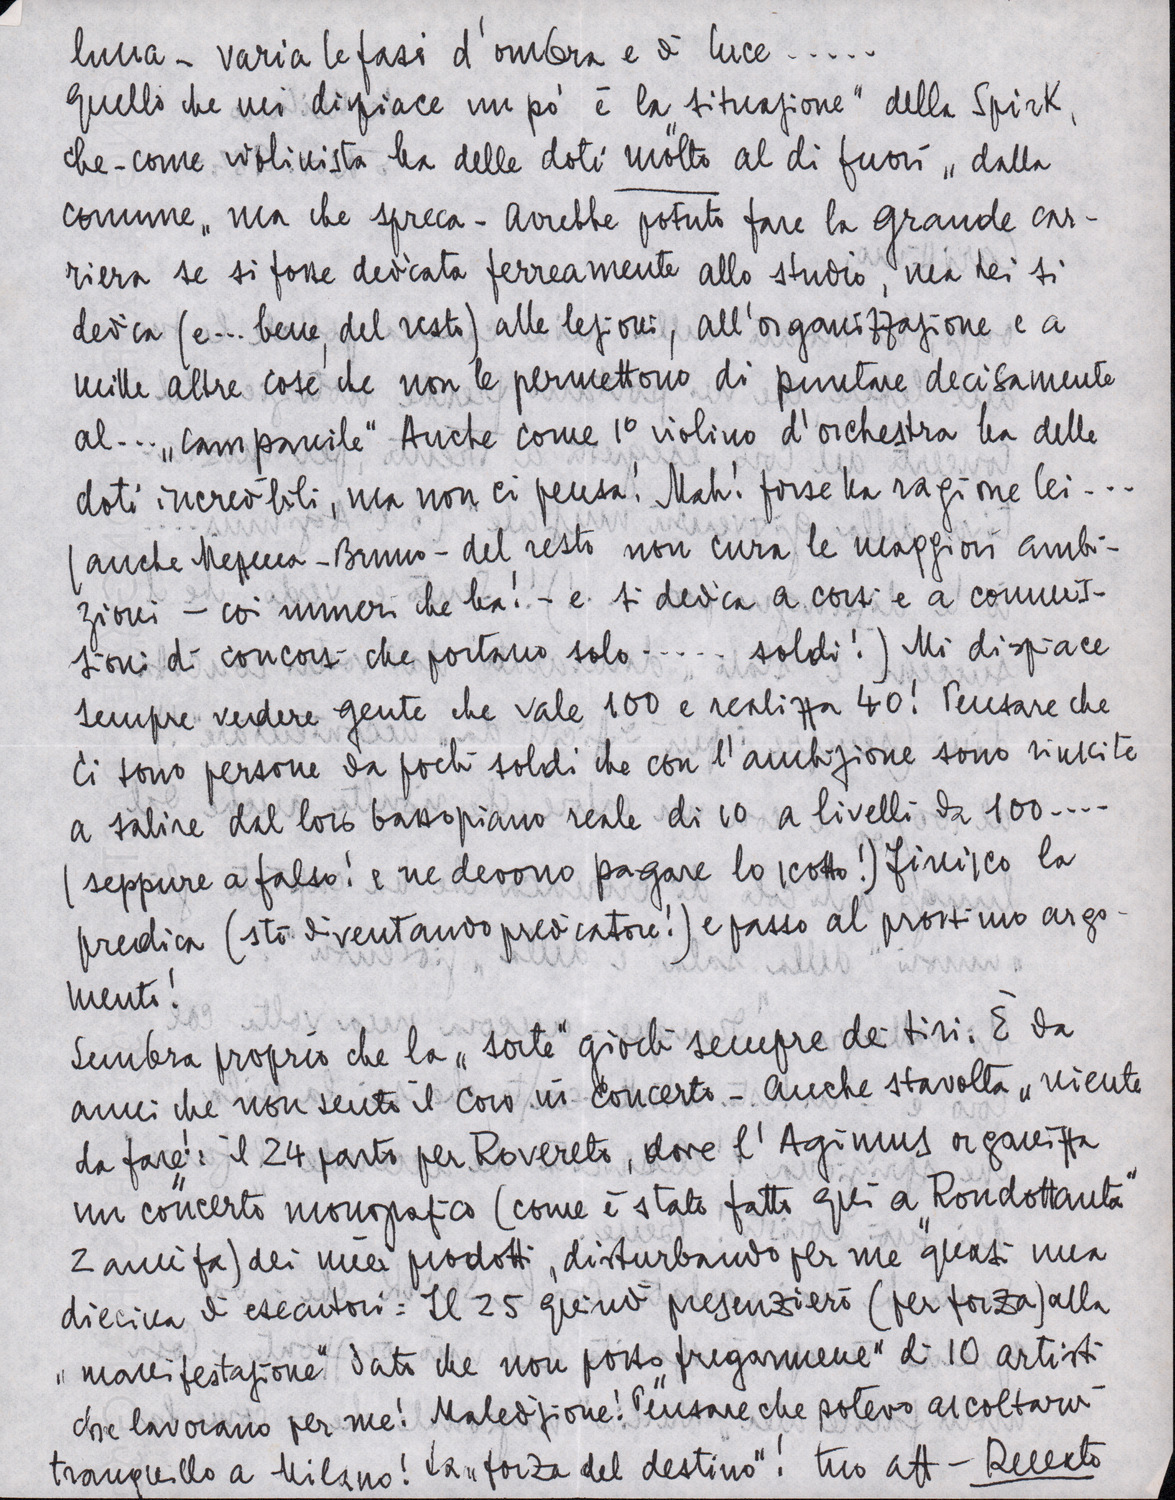 luna - varia le fasi d'ombra e di luce .....
Quello che mi dispiace un po' è la „situazione" della Spirk,
che - come violinista ha delle doti molto al di fuori „dalla
comune„ ma che spreca - Avrebbe potuto fare la grande car-
riera se si fosse dedicata ferreamente allo studio, ma lei si
dedica (e... bene, del resto) alle lezioni, all'organizzazione e a
mille altre cose che non le permettono di puntare decisamente
al... „campanile" Anche come 1º violino d'orchestra ha delle
doti incredibili, ma non ci pensa! Mah! forse ha ragione lei ...
(anche - Bruno - del resto non cura le maggiori ambi-
zioni - coi numeri che ha! - e si dedica a corsi e a commis-
sioni di concorsi che portano solo ..... soldi!) Mi dispiace
sempre vedere gente che vale 100 e realizza 40! Pensare che
ci sono persone da pochi soldi che con l'ambizione sono riuscite
a salire dal loro bassopiano reale di 10 a livelli da 100 ....
(seppure a falso! e ne devono pagare lo scotto!) Finisco la
predica (sto diventando predicatore!) e passo al prossimo argo-
mento!
Sembra proprio che la „sorte" giochi sempre dei tiri. È da
anni che non sento il Coro in concerto - Anche stavolta „niente
da fare": il 24 parto per Rovereto, dove l'Agimus organizza
un concerto monografico (come è stato fatto qui a „Rondottanta"
2 anni fa) dei miei prodotti, disturbando per me quasi una
diecina di esecutori: Il 25 quindi presenzierò (per forza) alla
„manifestazione" dato che non posso „fregarmene" di 10 artisti
che lavorano per me! Maledizione! Pensare che potevo ascoltarvi
tranquillo a Milano! La „forza del destino"! tuo aff - Renato